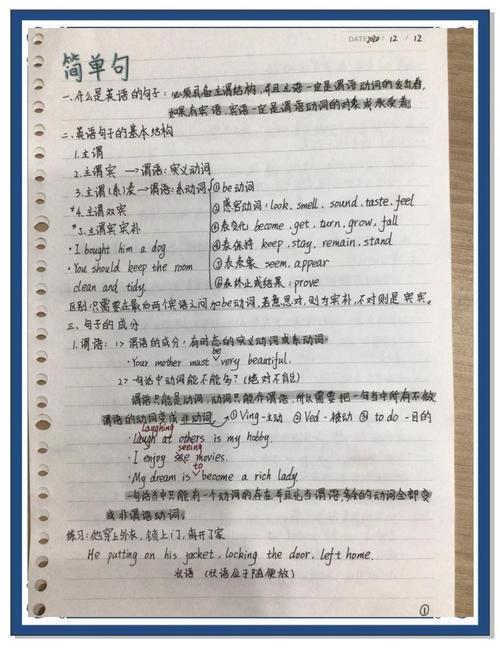 DATE 2020 / 12 / 12
简单句
一、什么是英语的句子：必须具备主谓结构，并且主语一定是谓语动词的发出者，
如果有宾语，宾语一定是谓语动词的对象或承受者。
二、英语句子的基本结构
1.主谓
2.主谓宾 → 谓语：实义动词
3.主谓(系)表 → 谓语：系动词 ①be动词
*4.主谓双宾 ②感官动词：look、smell、sound、taste、feel
*5.主谓宾宾补 ③表变化 become、get、turn、grow、fall
· I bought him a dog ④表保持 keep、stay、remain、stand
· You should keep the room ⑤表表象 seem、appear
clean and tidy. ⑥表终止或结果：prove
区别：只需要在最后两个宾语之间加be动词，若意思对，则为宾补，不对则是宾宾。
三、句子的成分
1.谓语：1> 谓语的成分：有时态的实义动词或系动词。
be
· Your mother must ∨ very beautiful.
2> 句话中动词能不能多？(绝对不能)
谓语只能是动词，动词只能作谓语，所以需要把一句当中所有不做
谓语的动词变成非动词 → ①Ving-主动 ②Ved-被动 ③to do-目的
Laughing
· Laugh at others is my hobby.
seeing
· I enjoy see movies.
to
· My dream is ∨ become a rich lady.
一句话当中只能有一个动词的存在并且充当谓语，多余的动词全部变
成非谓语动词。
练习：他穿上外衣，锁上门，离开了家
He putting on his jacket, locking the door, left home.
状语 (状语位子随便放)
①